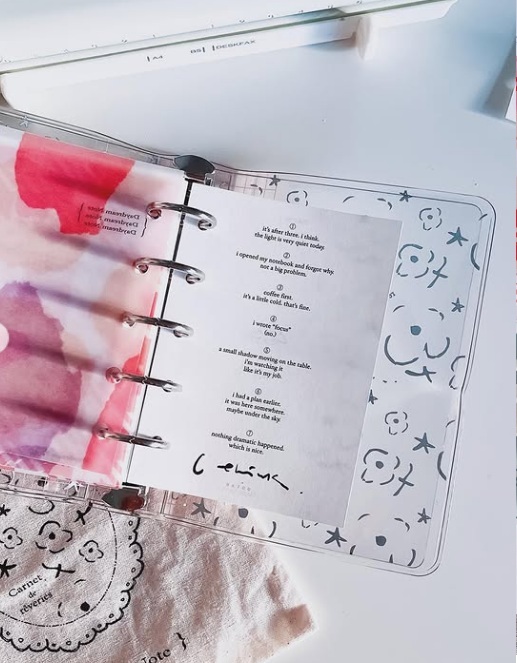 A4 B5 DESKFAX
Daydream Note
Daydream Note
Daydream Note
①
it's after three. i think.
the light is very quiet today.
②
i opened my notebook and forgot why.
not a big problem.
③
coffee first.
it's a little cold. that's fine.
④
i wrote "focus"
(no.)
⑤
a small shadow moving on the table.
i'm watching it
like it's my job.
⑥
i had a plan earlier.
it was here somewhere.
maybe under the sky.
⑦
nothing dramatic happened.
which is nice.
Carnet
de
rêveries
Note }